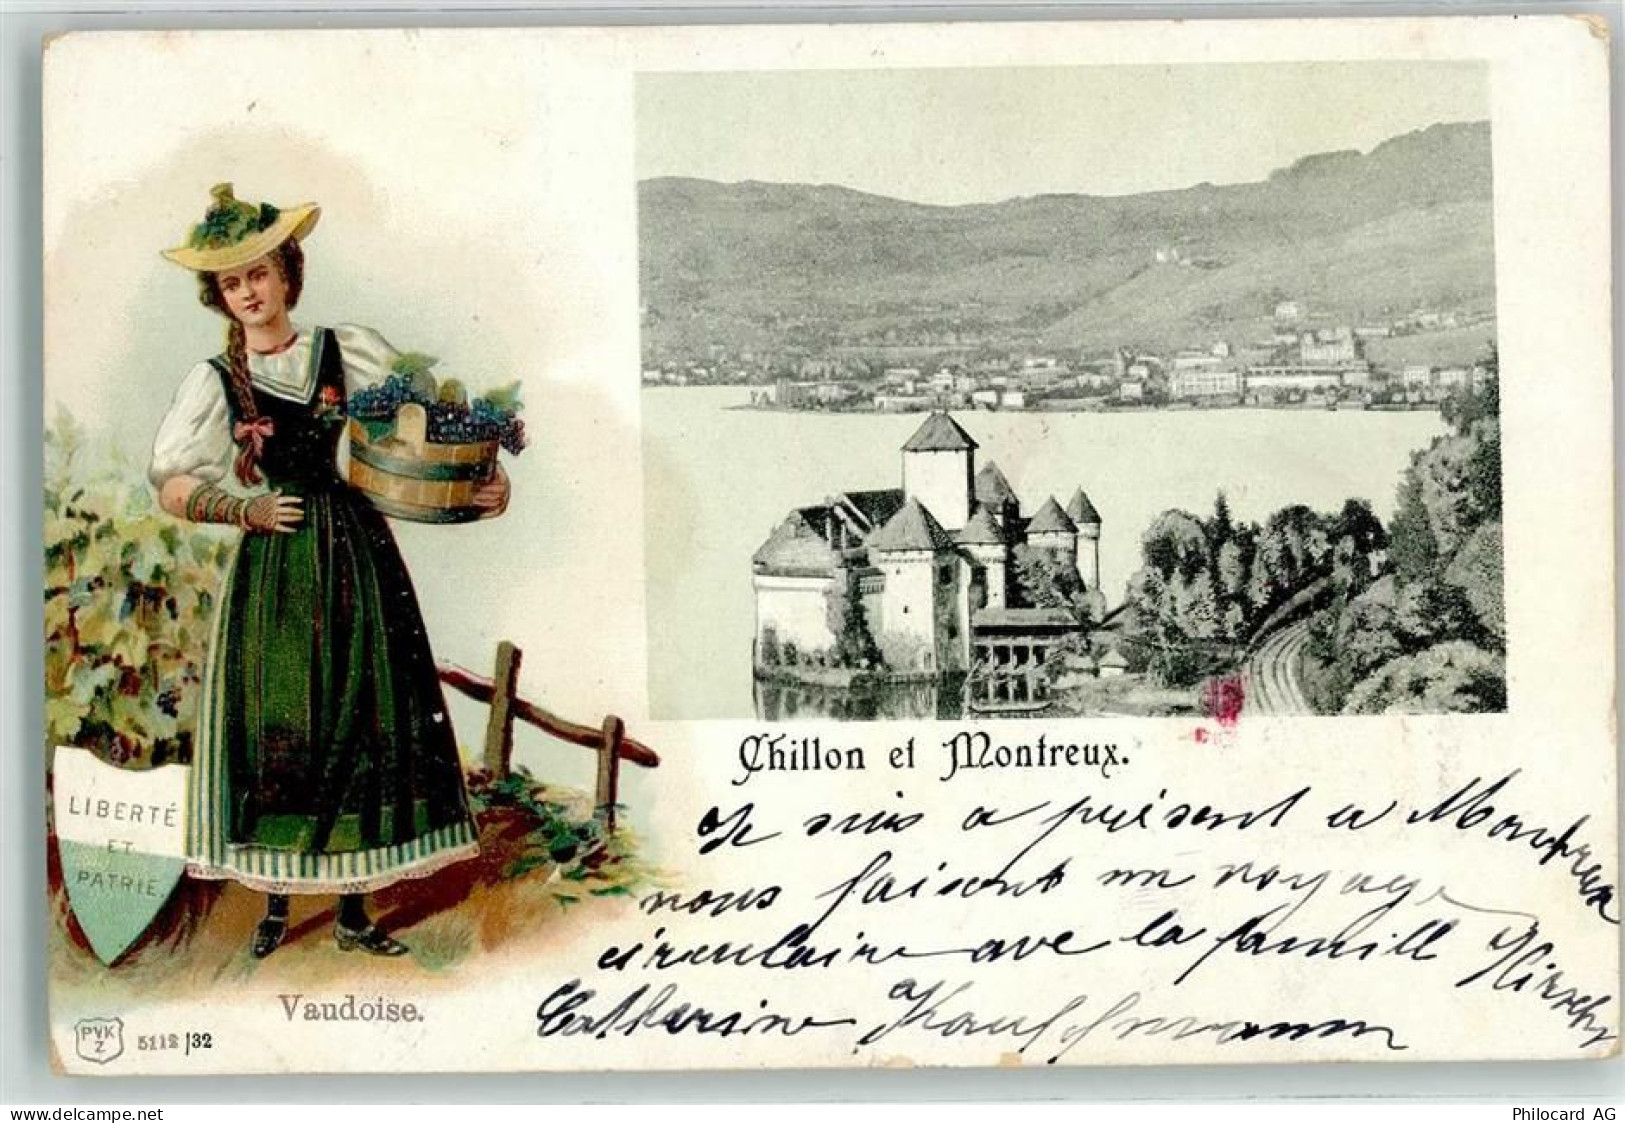 LIBERTÉ
ET
PATRIE
Chillon et Montreux.
Je suis a présent a Montreux
nous faisont un voyage
circulaire ave la famill Hirschy
Catherine Kauffmann
Vaudoise.
PVK
Z
5112/32
delcampe.net
Philocard AG